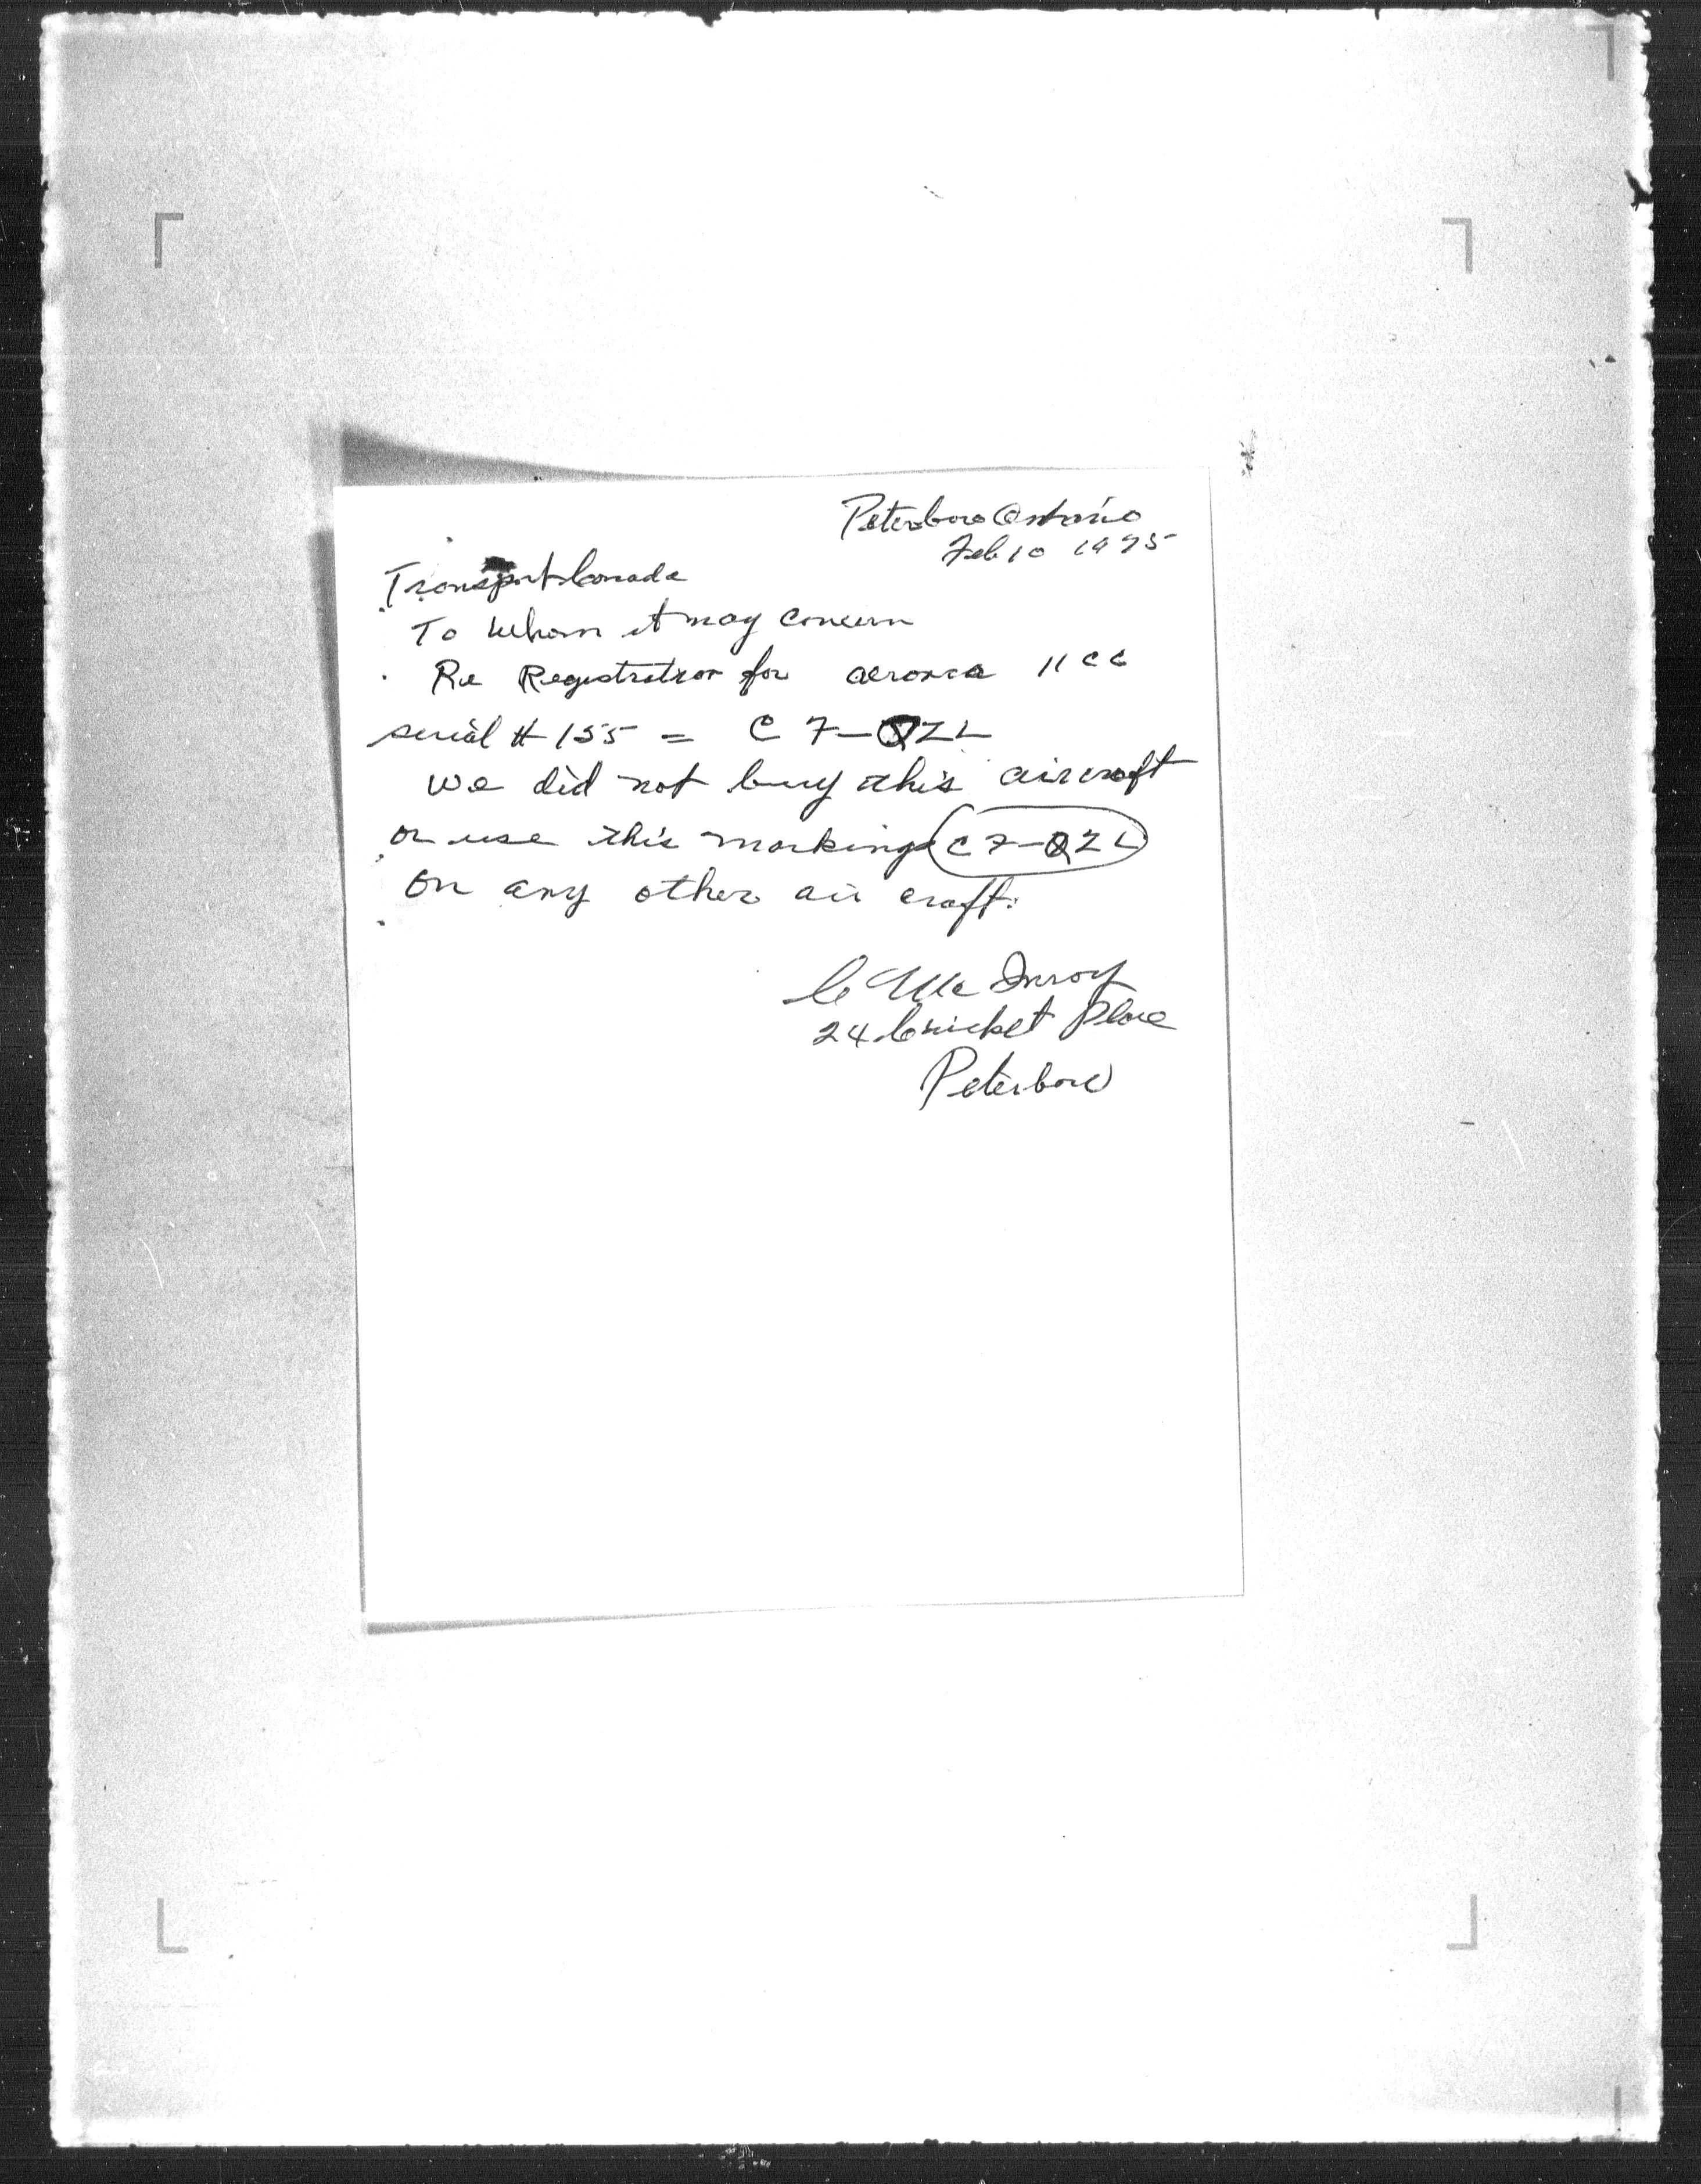 Peterboro Ontario
Feb 10 1975
Transport Canada
To Whom it may concern
Re Registration for aeronca 11CC
serial # 155 = CF-QZL
we did not buy this aircraft
or use this marking CF-QZL
on any other air craft.
C McInroy
24 Cricket Place
Peterboro